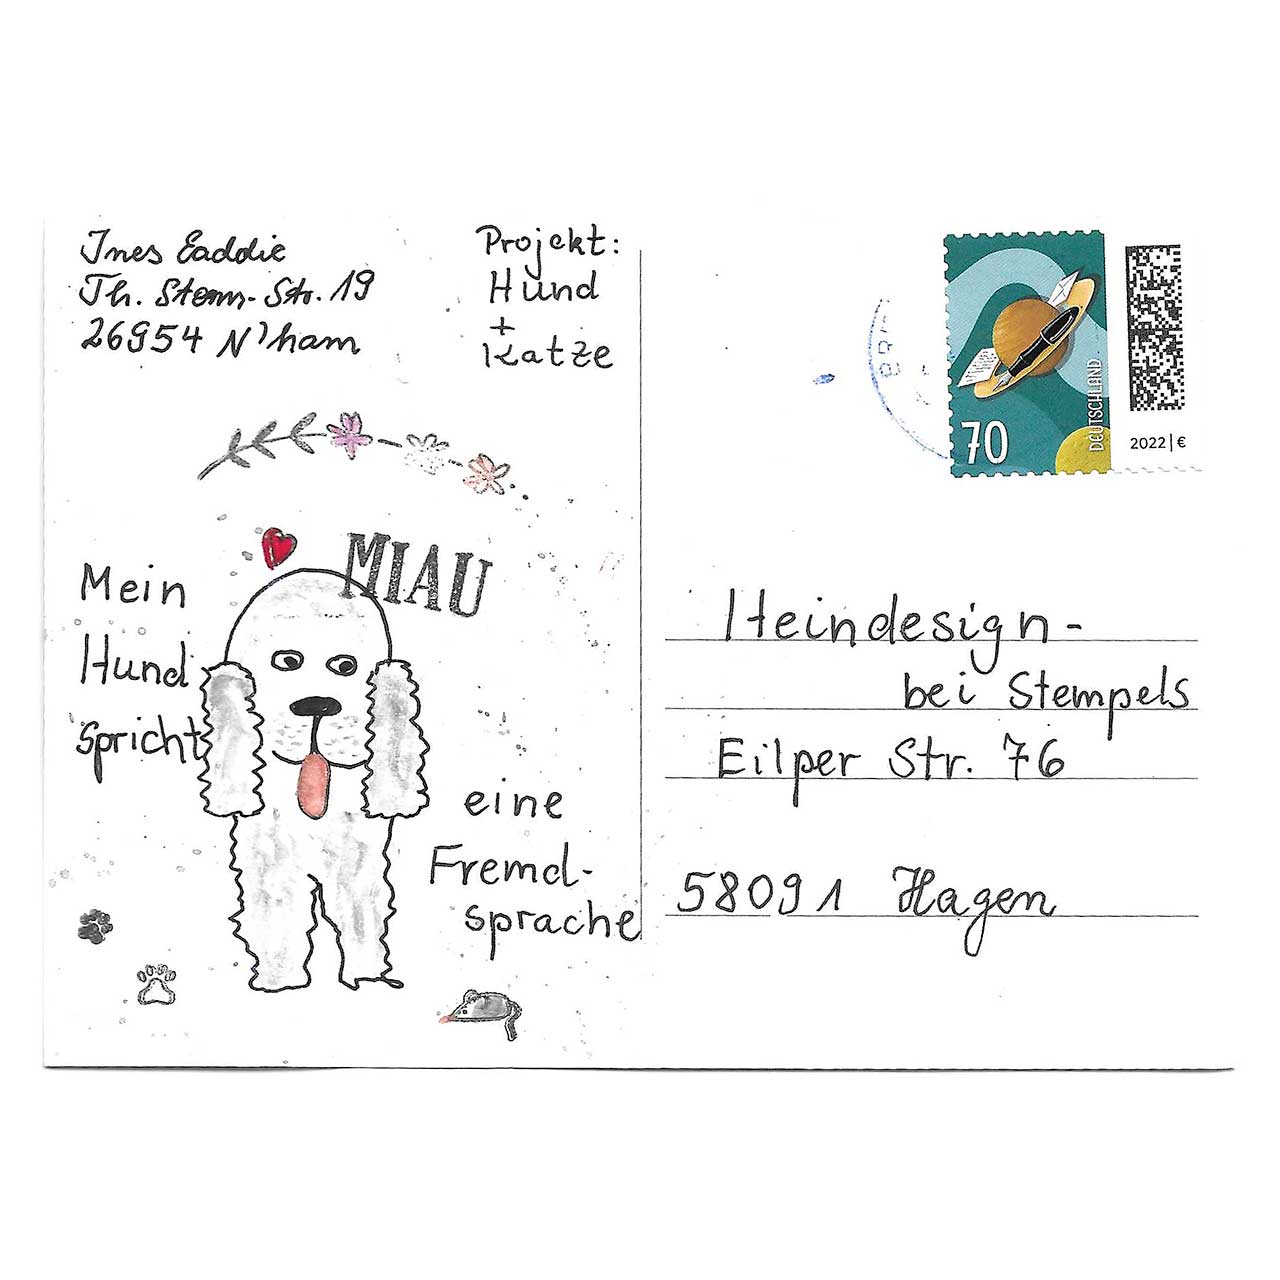 Ines Eaddie
Th. Storm-Str. 19
26954 N'ham
Projekt:
Hund
+
Katze
MIAU
Mein
Hund
spricht
eine
Fremd-
sprache
70
DEUTSCHLAND
2022 | €
Heindesign-
bei Stempels
Eilper Str. 76
58091 Hagen